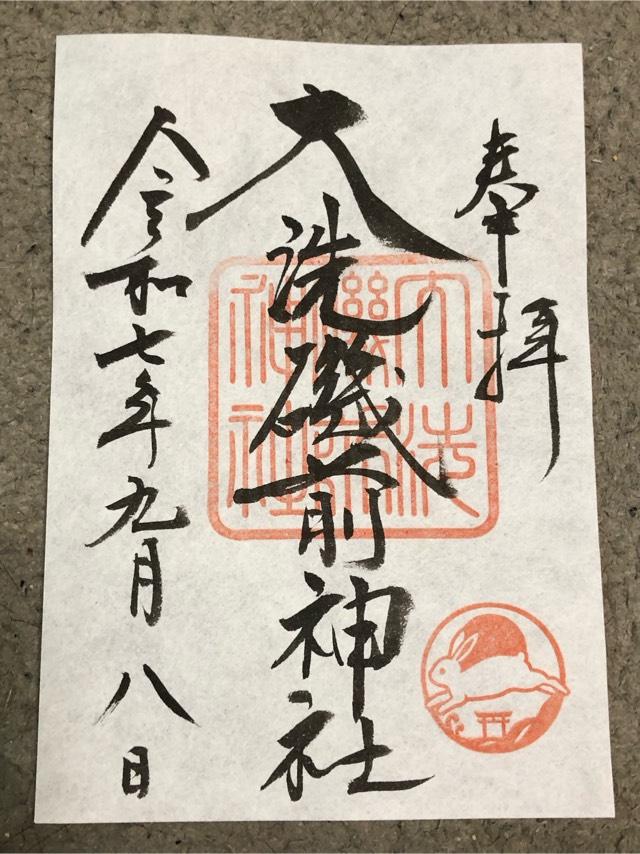 奉拝
大洗磯前神社
令和七年九月八日
大洗
磯前
神社